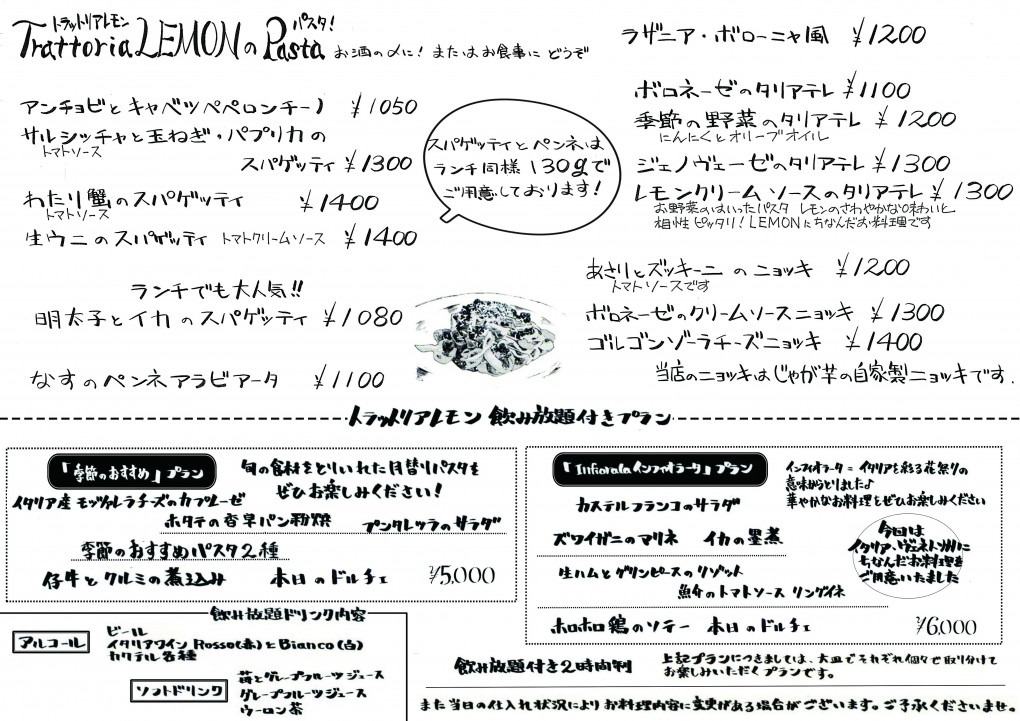 トラットリアレモン パスタ!
Trattoria LEMONの Pasta お酒の〆に! またはお食事に どうぞ
アンチョビとキャベツペペロンチーノ ¥1050
サルシッチャと玉ねぎ・パプリカの
トマトソース
スパゲッティ ¥1300
わたり蟹のスパゲッティ ¥1400
トマトソース
生ウニのスパゲッティ トマトクリームソース ¥1400
ランチでも大人気!!
明太子とイカのスパゲッティ ¥1080
なすのペンネアラビアータ ¥1100
スパゲッティとペンネは
ランチ同様130gで
ご用意しております!
ラザニア・ボローニャ風 ¥1200
ボロネーゼのタリアテレ ¥1100
季節の野菜のタリアテレ ¥1200
にんにくとオリーブオイル
ジェノヴェーゼのタリアテレ ¥1300
レモンクリームソースのタリアテレ ¥1300
お野菜のはいったパスタ レモンのさわやかな味わいと
相性ピッタリ! LEMONにちなんだお料理です
あさりとズッキーニのニョッキ ¥1200
トマトソースです
ボロネーゼのクリームソースニョッキ ¥1300
ゴルゴンゾーラチーズニョッキ ¥1400
当店のニョッキはじゃが芋の自家製ニョッキです.
トラットリアレモン 飲み放題付きプラン
「季節のおすすめ」プラン
旬の食材をとりいれた月替りパスタを
ぜひお楽しみください!
イタリア産 モッツァレラチーズのカプレーゼ
ホタテの香草パン粉焼 プンタレッラのサラダ
季節のおすすめパスタ2種
仔牛とクルミの煮込み 本日のドルチェ ¥5,000
「Infioralaインフィオラータ」プラン
インフィオラータ=イタリアを彩る花祭りの
意味からとりました♪
華やかなお料理をぜひお楽しみください
カステルフランコのサラダ
ズワイガニのマリネ イカの墨煮
生ハムとグリンピースのリゾット
魚介のトマトソース リングイネ
ホロホロ鶏のソテー 本日のドルチェ ¥6,000
今回は
イタリア、ヴェネト州に
ちなんだお料理を
ご用意いたました
飲み放題ドリンク内容
アルコール
ビール
イタリアワイン Rosso(赤)とBianco(白)
カクテル各種
ソフトドリンク
苺とグレープフルーツジュース
グレープフルーツジュース
ウーロン茶
飲み放題付き2時間制
上記プランにつきましては、大皿でそれぞれ個々で取り分けて
お楽しみいただくプランです。
また当日の仕入れ状況によりお料理内容に変更がある場合がございます。ご了承くださいませ。